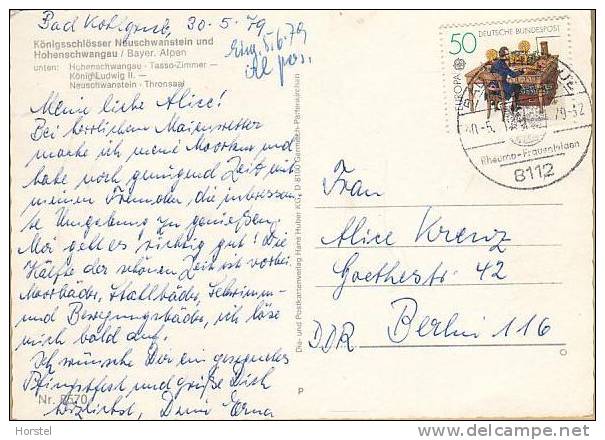 Bad Kohlgrub, 30.5.79
Königsschlösser Neuschwanstein und
Hohenschwangau / Bayer. Alpen
unten: Hohenschwangau - Tasso-Zimmer —
König Ludwig II. —
Neuschwanstein - Thronsaal
5.6.79
Meine liebe Alice!
Bei herrlichem Maienwetter
mache ich meine Moorkur und
habe noch genügend Zeit mit
meinen Freunden die interessan-
te Umgebung zu genießen.
Mir geht es richtig gut! Die
Hälfte der schönen Zeit ist vorbei.
Moorbäder, Stallbäder, Schwimm-
und Bewegungsbäder, ich löse
mich bald auf.
Ich wünsche Dir ein gesegnetes
Pfingstfest und grüße Dich
herzlichst, Deine Erna
Nr. 8570
Die- und Postkartenverlag Hans Huber KG, D 8100 Garmisch-Partenkirchen
P
50 DEUTSCHE BUNDESPOST
EUROPA CEPT
Rheuma-Frauenleiden
8112
Frau
Alice Krenz
Goethestr. 42
DDR Berlin 116
Horstel
www.delcampe.net